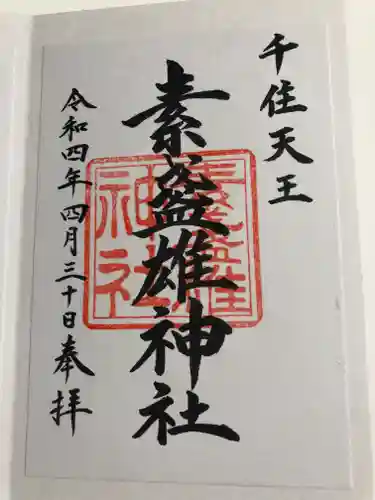 千住天王
素盞雄神社
令和四年四月三十日奉拝
素盞雄
神社